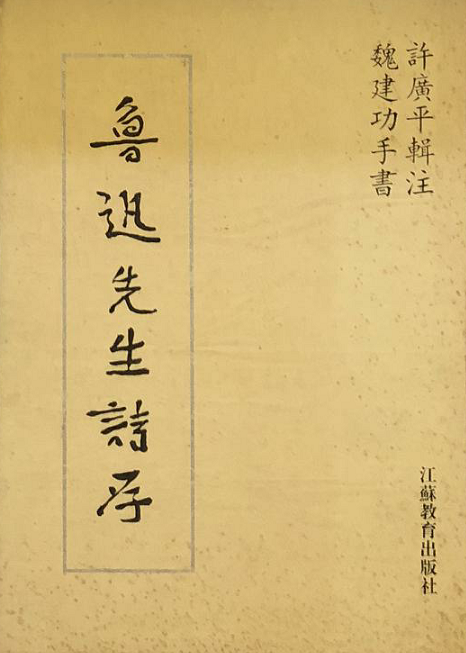 許廣平輯注
魏建功手書
魯迅先生詩存
江蘇教育出版社